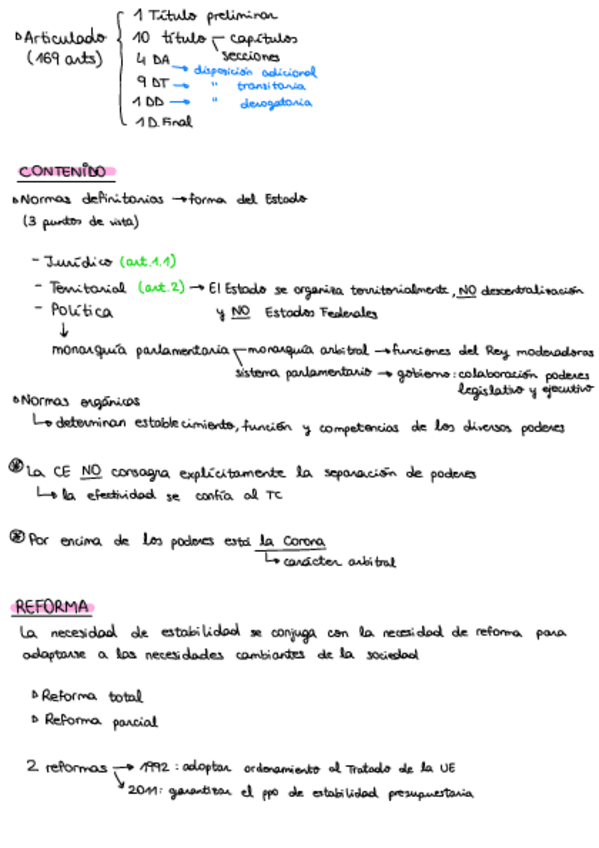 1 Título preliminar
▷Articulado
10 título
capítulos
(169 arts)
secciones
4 DA → disposición adicional
9 DT → " transitoria
1 DD → " derogatoria
1 D. Final
CONTENIDO
▷Normas definitorias → forma del Estado
(3 puntos de vista)
- Jurídico (art.1.1)
- Territorial (art.2) → El Estado se organiza territorialmente, NO descentralización
- Política
y NO Estados Federales
↓
monarquía parlamentaria
monarquía arbitral → funciones del Rey moderadoras
sistema parlamentario → gobierno: colaboración poderes
legislativo y ejecutivo
▷Normas orgánicas
↳ determinan establecimiento, función y competencias de los diversos poderes
⊛ La CE NO consagra explícitamente la separación de poderes
↳ la efectividad se confía al TC
⊛ Por encima de los poderes está la Corona
↳ carácter arbitral
REFORMA
La necesidad de estabilidad se conjuga con la necesidad de reforma para
adaptarse a las necesidades cambiantes de la sociedad
▷ Reforma total
▷ Reforma parcial
2 reformas → 1992: adaptar ordenamiento al Tratado de la UE
↘ 2011: garantizar el ppo de estabilidad presupuestaria